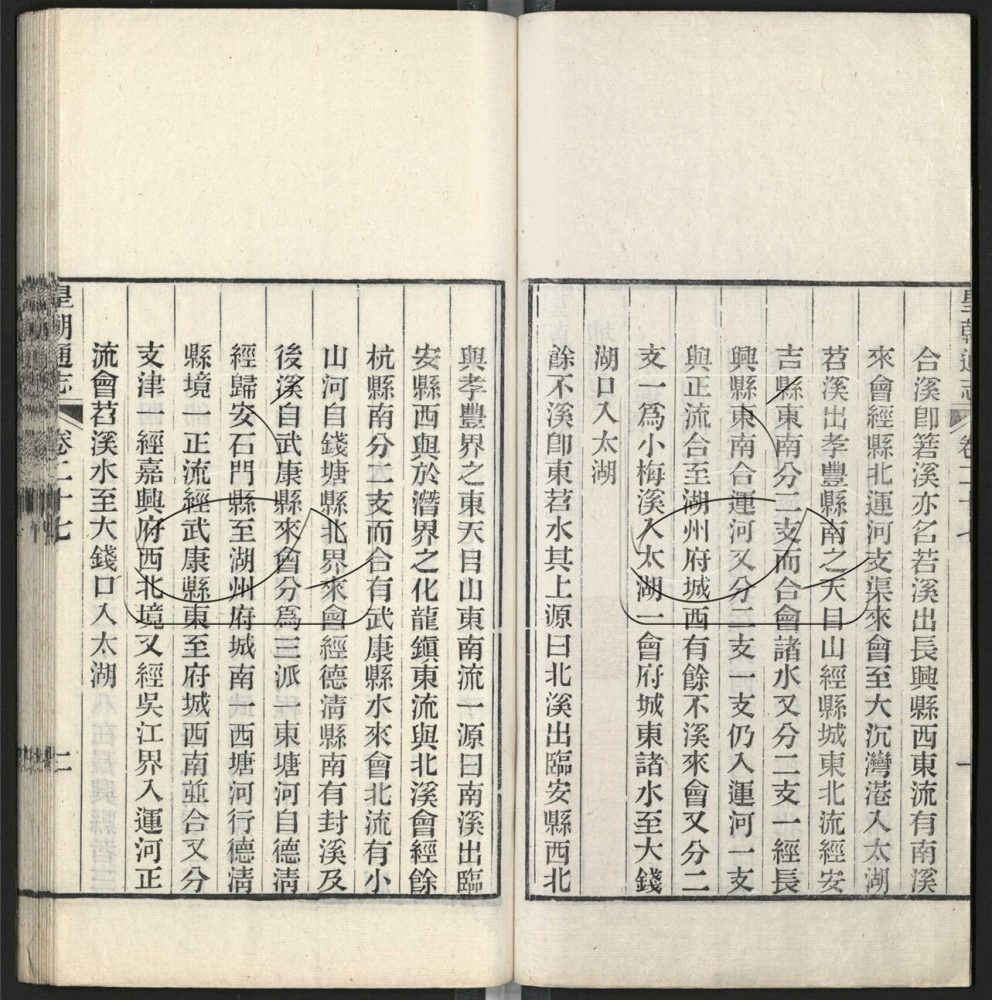 合溪卽箬溪亦名若溪出長興縣西東流有南溪
來會經縣北運河支渠來會至大沉灣港入太湖
苕溪出孝豐縣南之天目山經縣城東北流經安
吉縣東南分二支而合會諸水又分二支一經長
興縣東南合運河又分二支一支仍入運河一支
與正流合至湖州府城西有餘不溪來會又分二
支一爲小梅溪入太湖一會府城東諸水至大錢
湖口入太湖
餘不溪卽東苕水其上源曰北溪出臨安縣西北
皇朝通志 卷二十七
與孝豐界之東天目山東南流一源曰南溪出臨
安縣西與於潛界之化龍鎮東流與北溪會經餘
杭縣南分二支而合有武康縣水來會北流有小
山河自錢塘縣北界來會經德淸縣南有封溪及
後溪自武康縣來會分爲三派一東塘河自德淸
經歸安石門縣至湖州府城南一西塘河行德淸
縣境一正流經武康縣東至府城西南並合又分
支津一經嘉興府西北境又經吳江界入運河正
流會苕溪水至大錢口入太湖
皇朝通志 卷二十七